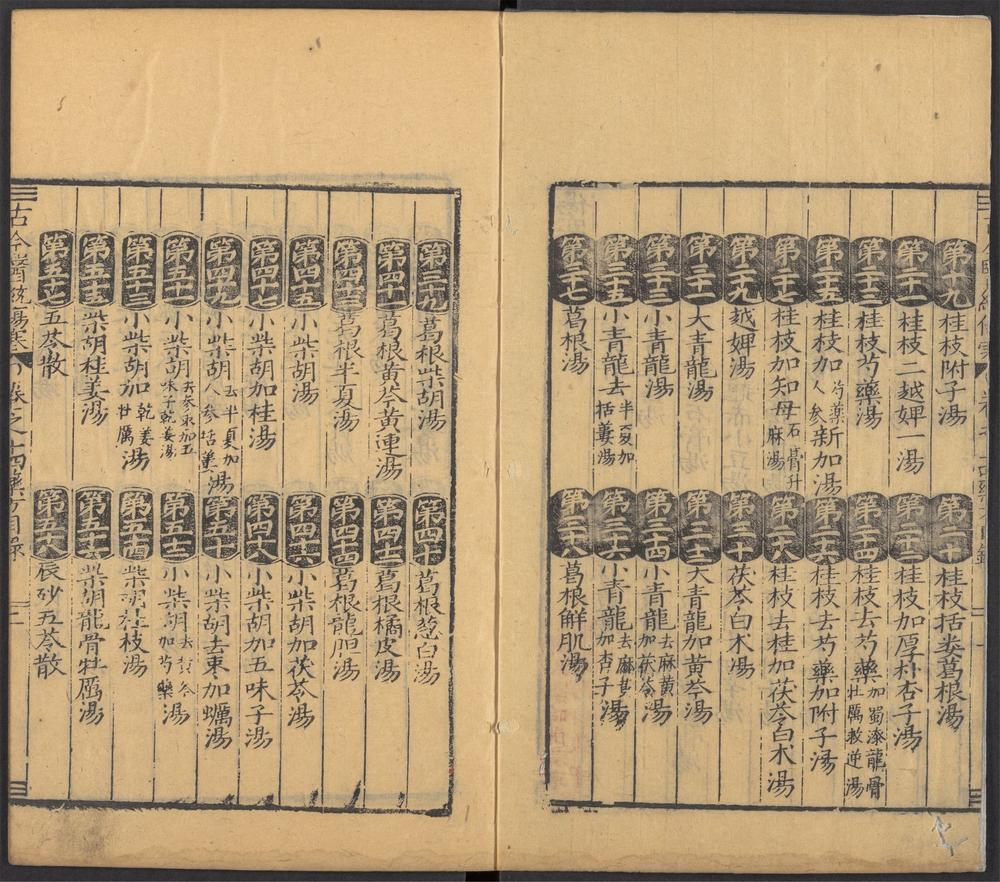 第十九桂枝附子湯
第二十桂枝括蒌葛根湯
第二十一桂枝二越婢一湯
第二十二桂枝加厚朴杏子湯
第二十三桂枝芍藥湯
第二十四桂枝去芍藥加蜀漆龍骨牡厲救逆湯
第二十五桂枝加芍藥人參新加湯
第二十六桂枝去芍藥加附子湯
第二十七桂枝加知母石膏升麻湯
第二十八桂枝去桂加茯苓白术湯
第二十九越婢湯
第三十茯苓白术湯
第三十一大青龍湯
第三十二大青龍加黄芩湯
第三十三小青龍湯
第三十四小青龍去麻黄加茯苓湯
第三十五小青龍去半夏加括蔞湯
第三十六小青龍去麻黄加杏子湯
第三十七葛根湯
第三十八葛根解肌湯
第三十九葛根柴胡湯
第四十葛根葱白湯
第四十一葛根黄芩黄連湯
第四十二葛根橘皮湯
第四十三葛根半夏湯
第四十四葛根龍胆湯
第四十五小柴胡湯
第四十六小柴胡加茯苓湯
第四十七小柴胡加桂湯
第四十八小柴胡加五味子湯
第四十九小柴胡去半夏加人參括蔞湯
第五十小柴胡去棗加蠣湯
第五十一小柴胡去參棗加五味子乾姜湯
第五十二小柴胡去黄芩加芍藥湯
第五十三小柴胡加乾姜牡厲湯
第五十四柴胡桂枝湯
第五十五柴胡桂姜湯
第五十六柴胡龍骨牡厲湯
第五十七五苓散
第五十八辰砂五苓散
古今醫統傷寒 卷之十四藥方目錄 二